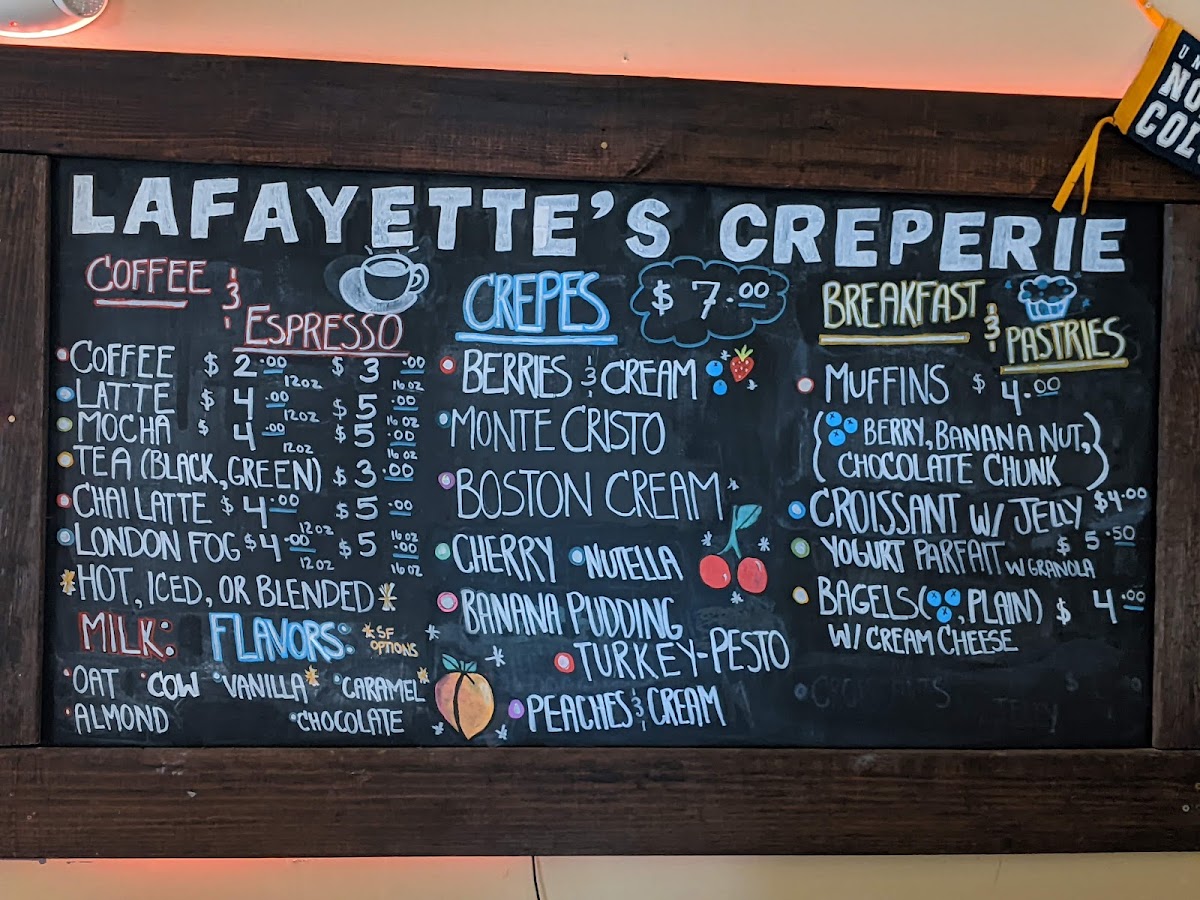 LAFAYETTE'S CREPERIE
COFFEE &
ESPRESSO
COFFEE $2.00 12oz $3.00 16oz
LATTE $4.00 12oz $5.00 16oz
MOCHA $4.00 12oz $5.00 16oz
TEA (BLACK, GREEN) $3.00
CHAI LATTE $4.00 12oz $5.00 16oz
LONDON FOG $4.00 12oz $5.00 16oz
*HOT, ICED, OR BLENDED*
MILK:
OAT COW
ALMOND
FLAVORS: *SF OPTIONS
VANILLA* CARAMEL*
CHOCOLATE
CREPES $7.00
BERRIES & CREAM
MONTE CRISTO
BOSTON CREAM
CHERRY NUTELLA
BANANA PUDDING
TURKEY-PESTO
PEACHES & CREAM
BREAKFAST &
PASTRIES
MUFFINS $4.00
( BERRY, BANANA NUT,
CHOCOLATE CHUNK)
CROISSANT W/ JELLY $4.00
YOGURT PARFAIT W GRANOLA $5.50
BAGELS ( , PLAIN) $4.00
W/ CREAM CHEESE